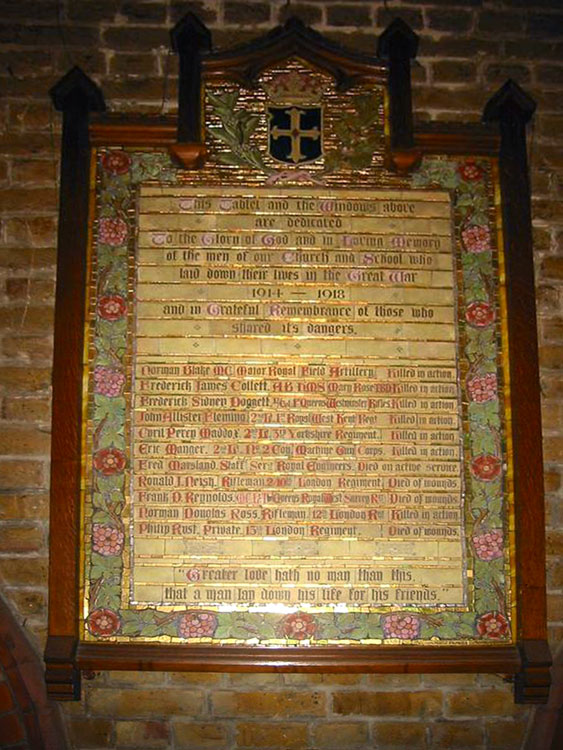 This Tablet and the Windows above
are dedicated
To the Glory of God and in Loving Memory
of the men of our Church and School who
laid down their lives in the Great War
1914 — 1918
and in Grateful Remembrance of those who
shared its dangers.
Norman Blake M.C. Major Royal Field Artillery. Killed in action
Frederick James Collett. A.B. H.M.S. Mary Rose T.B.D. Killed in action
Frederick Sidney Doggett. Queens Westminster Rifles Killed in action
John Allister Fleming. 2nd Lt. Royal West Kent Regt. Killed in action
Cyril Percy Maddox. 2nd Lt. Yorkshire Regiment. Killed in action
Eric Manger. 2nd Lt. Coy. Machine Gun Corps. Killed in action
Fred Marsland. Staff Sergt Royal Engineers. Died on active service
Ronald J. Rifleman London Regiment. Died of wounds
Frank D. Reynolds. The Queens Royal West Surrey Rt. Died of wounds
Norman Douglas Ross. Rifleman. 12th London Rgt Killed in action
Philip Rust. Private. 15th London Regiment. Died of wounds.
"Greater love hath no man than this,
that a man lay down his life for his friends."